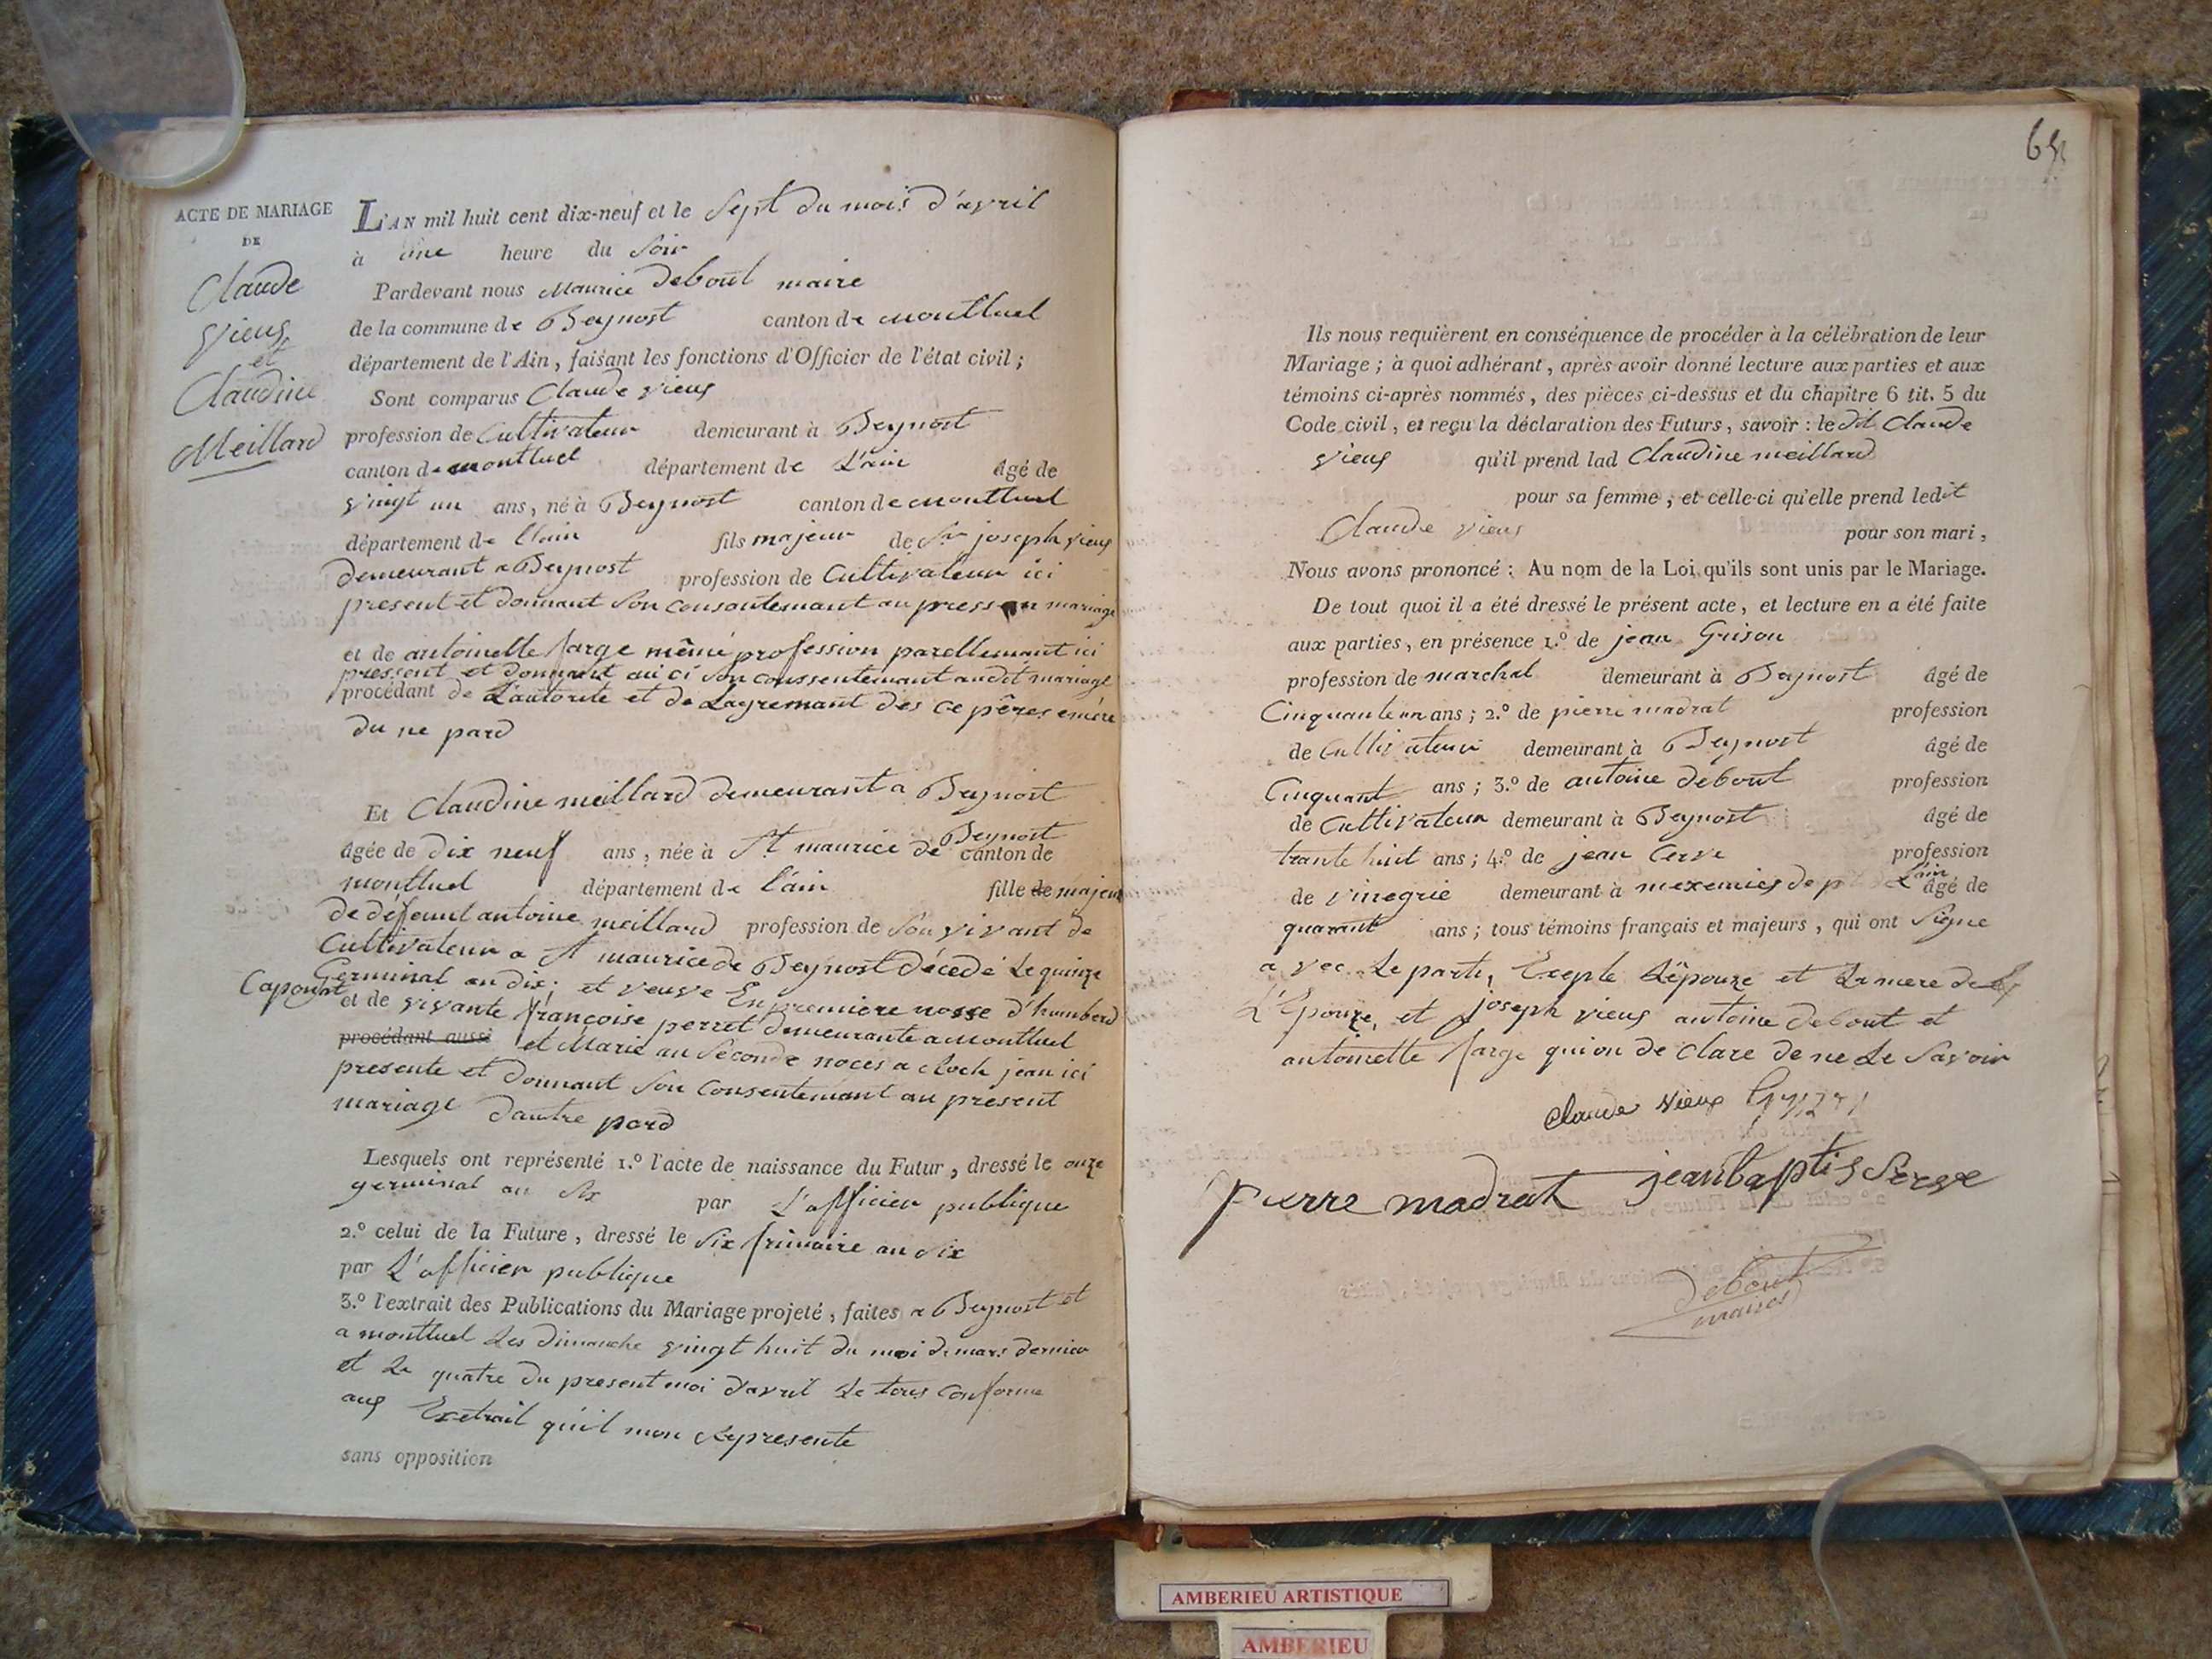 ACTE DE MARIAGE
DE
Claude
vieux
et
Claudine
Meillard
L'AN mil huit cent dix-neuf et le Sept du mois d'avril
à une heure du Soir
Pardevant nous Maurice Debout maire
de la commune de Beynost canton de montluel
département de l'Ain, faisant les fonctions d'Officier de l'état civil ;
Sont comparus Claude vieux
profession de Cultivateur demeurant à Beynost
canton de montluel département de L'ain âgé de
vingt un ans, né à Beynost canton de montluel
département de l'ain fils majeur de Sr joseph vieux
demeurant a Beynost profession de Cultivateur ici
present et donnant Son consontemant au pressen mariage
et de antoinette farge même profession parellemant ici
pressent et donnant au ci Son conssentemant audit mariage
procédant de L'autorite et de Lagremant des ce pêres emére
du ne pard
Et Claudine meillard demeurant a Beynost
âgée de dix neuf ans, née à St maurice de Beynost canton de
montluel département de l'ain fille de majeur
de défeunt antoine meillard profession de Son vivant de
Cultivateur a St maurice de Beynost décedé Le quinze
Germinal an dix ; et veuve En premiere nosse d'humberd
Caponat et de vivante françoise perret demeurante a montluel
procédant aussi et Marie au Seconde noces a Roch jean ici
presente et donnant Son Consentemant au présent
mariage d'autre pard
Lesquels ont représenté 1.º l'acte de naissance du Futur, dressé le onze
germinal an Six par L'officier publique
2.º celui de la Future, dressé le Six frimaire an Six
par L'officier publique
3.º l'extrait des Publications du Mariage projeté, faites a Beynost et
a montluel Les dimanche vingt huit du moi de mars dernier
et Le quatre du present moi d'avril Le tous conforme
aux Exetrait qu'il mon Représente
sans opposition
Ils nous requièrent en conséquence de procéder à la célébration de leur
Mariage ; à quoi adhérant, après avoir donné lecture aux parties et aux
témoins ci-après nommés, des pièces ci-dessus et du chapitre 6 tit. 5 du
Code civil, et reçu la déclaration des Futurs, savoir : le dit Claude
vieux qu'il prend lad Claudine meillard
pour sa femme, et celle-ci qu'elle prend ledit
Claude vieux pour son mari,
Nous avons prononcé : Au nom de la Loi, qu'ils sont unis par le Mariage.
De tout quoi il a été dressé le présent acte, et lecture en a été faite
aux parties, en présence 1.º de jean Grison
profession de marchal demeurant à Beynost âgé de
Cinquante un ans ; 2.º de pierre madrat profession
de Cultivateur demeurant à Beynost âgé de
Cinquant ans ; 3.º de antoine debout profession
de Cultivateur demeurant à Beynost âgé de
trante huit ans ; 4.º de jean Cerve profession
de vinegrie demeurant à mexemies dep L'ain âgé de
quarant ans ; tous témoins français et majeurs, qui ont Signe
a vec Le parti, Exepte L'épouze et La mere de
L'Epouze, et joseph vieux antoine debout et
antoinette farge qui on de clare de ne Le Savoir
claude vieux
pierre madrat jean baptis Serve
Debout
maire
AMBERIEU ARTISTIQUE
AMBERIEU